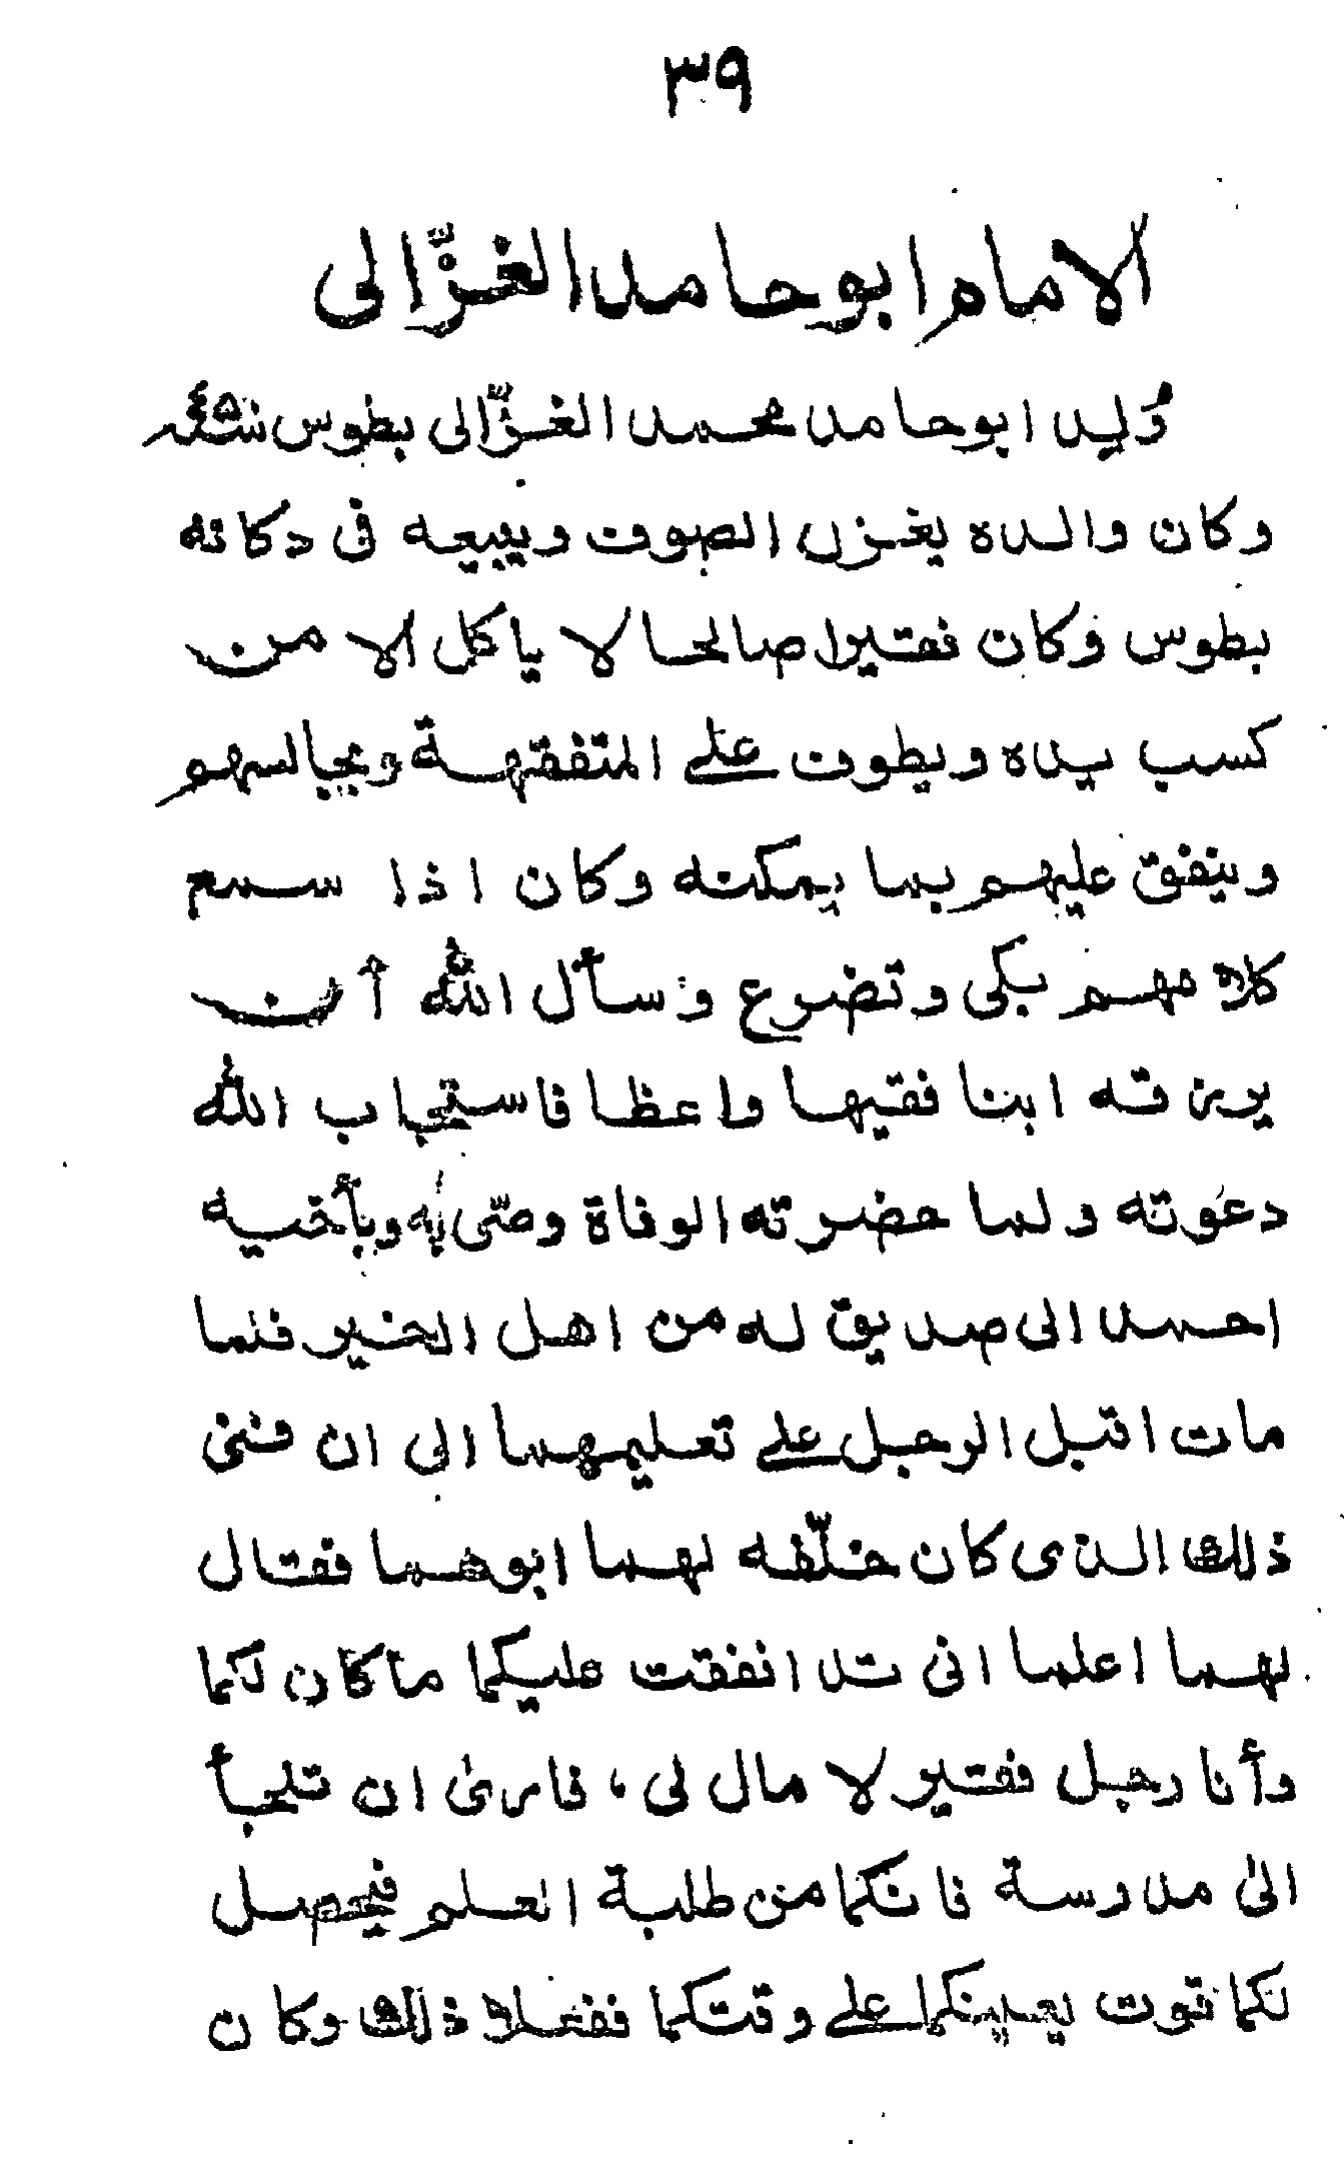 ٣٩
الامام ابو حامد الغزّالى
وُلِد ابو حامد محمد الغزّالى بطوس سنة ٤٥٠هـ
وكان والده يغزل الصوف ويبيعه فى دكانه
بطوس وكان فقيرا صالحا لا ياكل الا من
كسب يده ويطوف على المتفقهة ويجالسهم
وينفق عليهم بما يمكنه وكان اذا سمع
كلامهم بكى وتضرع وسأل الله أن
يرزقه ابنا فقيها واعظا فاستجاب الله
دعوته ولما حضرته الوفاة وصّى به وبأخيه
احمد الى صديق له من اهل الخير فلما
مات اقبل الرجل على تعليمهما الى ان فنى
ذلك الذى كان خلّفه لهما ابوهما فقال
لهما اعلما انى قد انفقت عليكما ما كان لكما
وأنا رجل فقير لا مال لى، فارى ان تلجأ
الى مدرسة فانكما من طلبة العلم فيحصل
لكما قوت يعينكما على وقتكما ففعلا ذلك وكان